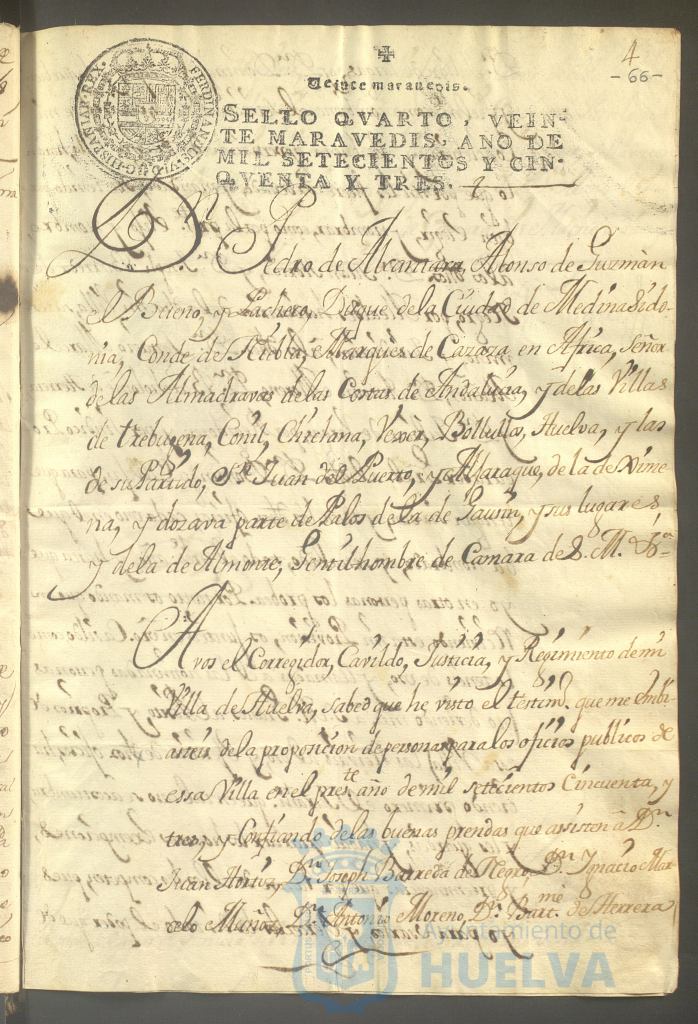 4
-66-
Veinte maravedis.
SELLO QVARTO, VEIN-
TE MARAVEDIS, AÑO DE
MIL SETECIENTOS Y CIN-
QVENTA Y TRES.
FERDINANDUS VI D G HISPANIAR REX
Dn Pedro de Alcantara, Alonso de Guzmàn
el Bueno, y Pacheco, Duque de la Ciudad de Medina Sido-
nia, Conde de Niebla, Marques de Cazaza en Africa, Señor
de las Almadravas de las Costas de Andalucia, y de las Villas
de trebugena, Conil, Chiclana, Vexer, Bollullos, Huelva, y las
de su Partido, Sn. Juan del Puerto, y Aljaraque, de la de Xime
na, y dozava parte de Palos de la de Gausin, y sus lugares,
y de la de Almonte, Gentilhombre de Camara de S. M.
A vos el Corregidor, Cavildo, Justicia, y Regimiento de mi
Villa de Huelva, sabed que he visto el testimo. que me embi-
asteis de la proposicion de personas para los oficios publicos de
essa Villa en el preste. año de mil setecientos Cincuenta, y
tres, y Confiando de las buenas prendas que assisten â Dn.
Juan Dn. Joseph Barreda de Negro, Dn. Ygnacio Mar
celo Muñoz, Dn. Antonio Moreno, Dn. Barme. de Herrera
Ayuntamiento de
HUELVA